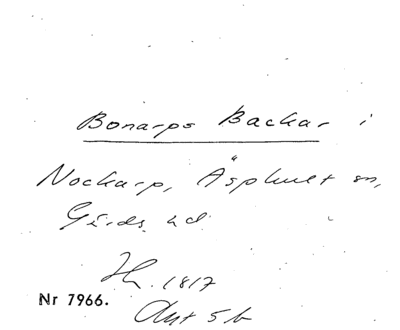 Bonarps Backar i
Nockarp, Äsphult sn,
Gärds hd
1817
Nr 7966.
Akt 5b